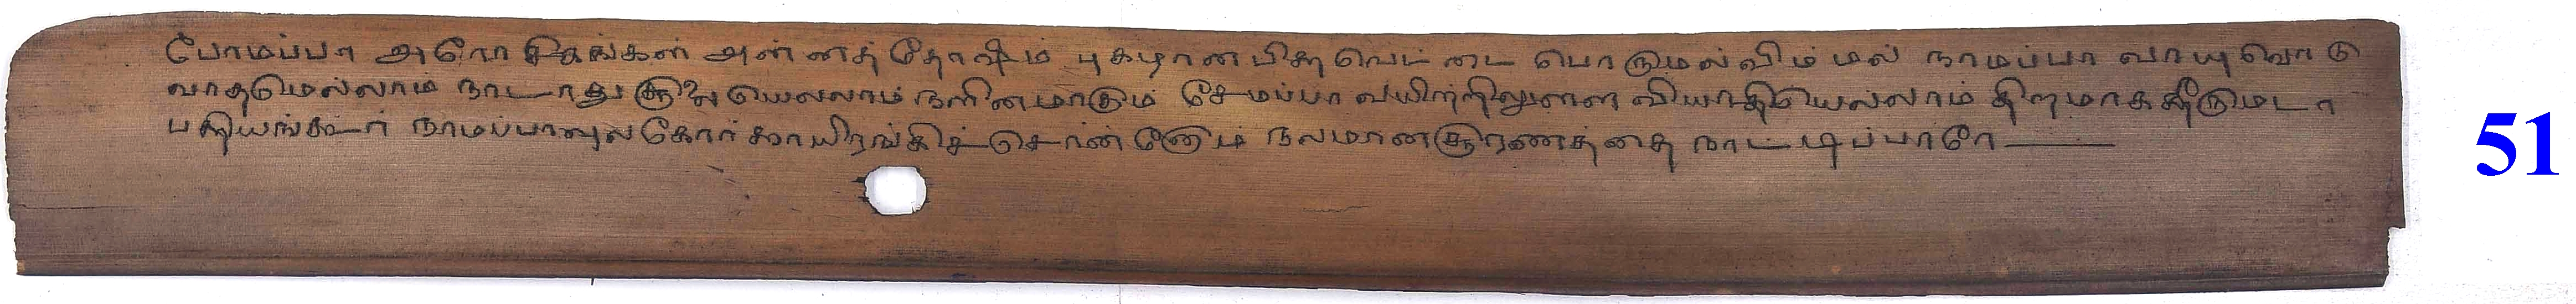 போமப்பா அரோசிகங்கள் அன்னத் தோஷம் புகழான பித்தவெட்டை பொருமல்விம்மல் நாமப்பா வாயுவொடு
வாதமெல்லாம் நாடாது சூலையெல்லாம் நளினமாகும் சேமப்பா வயிற்றிலுள்ள வியாதியெல்லாம் திறமாக தீருமடா
பத்தியங்கூர் நாமப்பாவுலகோர்க்காயிரங்கிச்சொன்னேம் நலமானசூரணத்தை நாட்டிப்பாரே
51